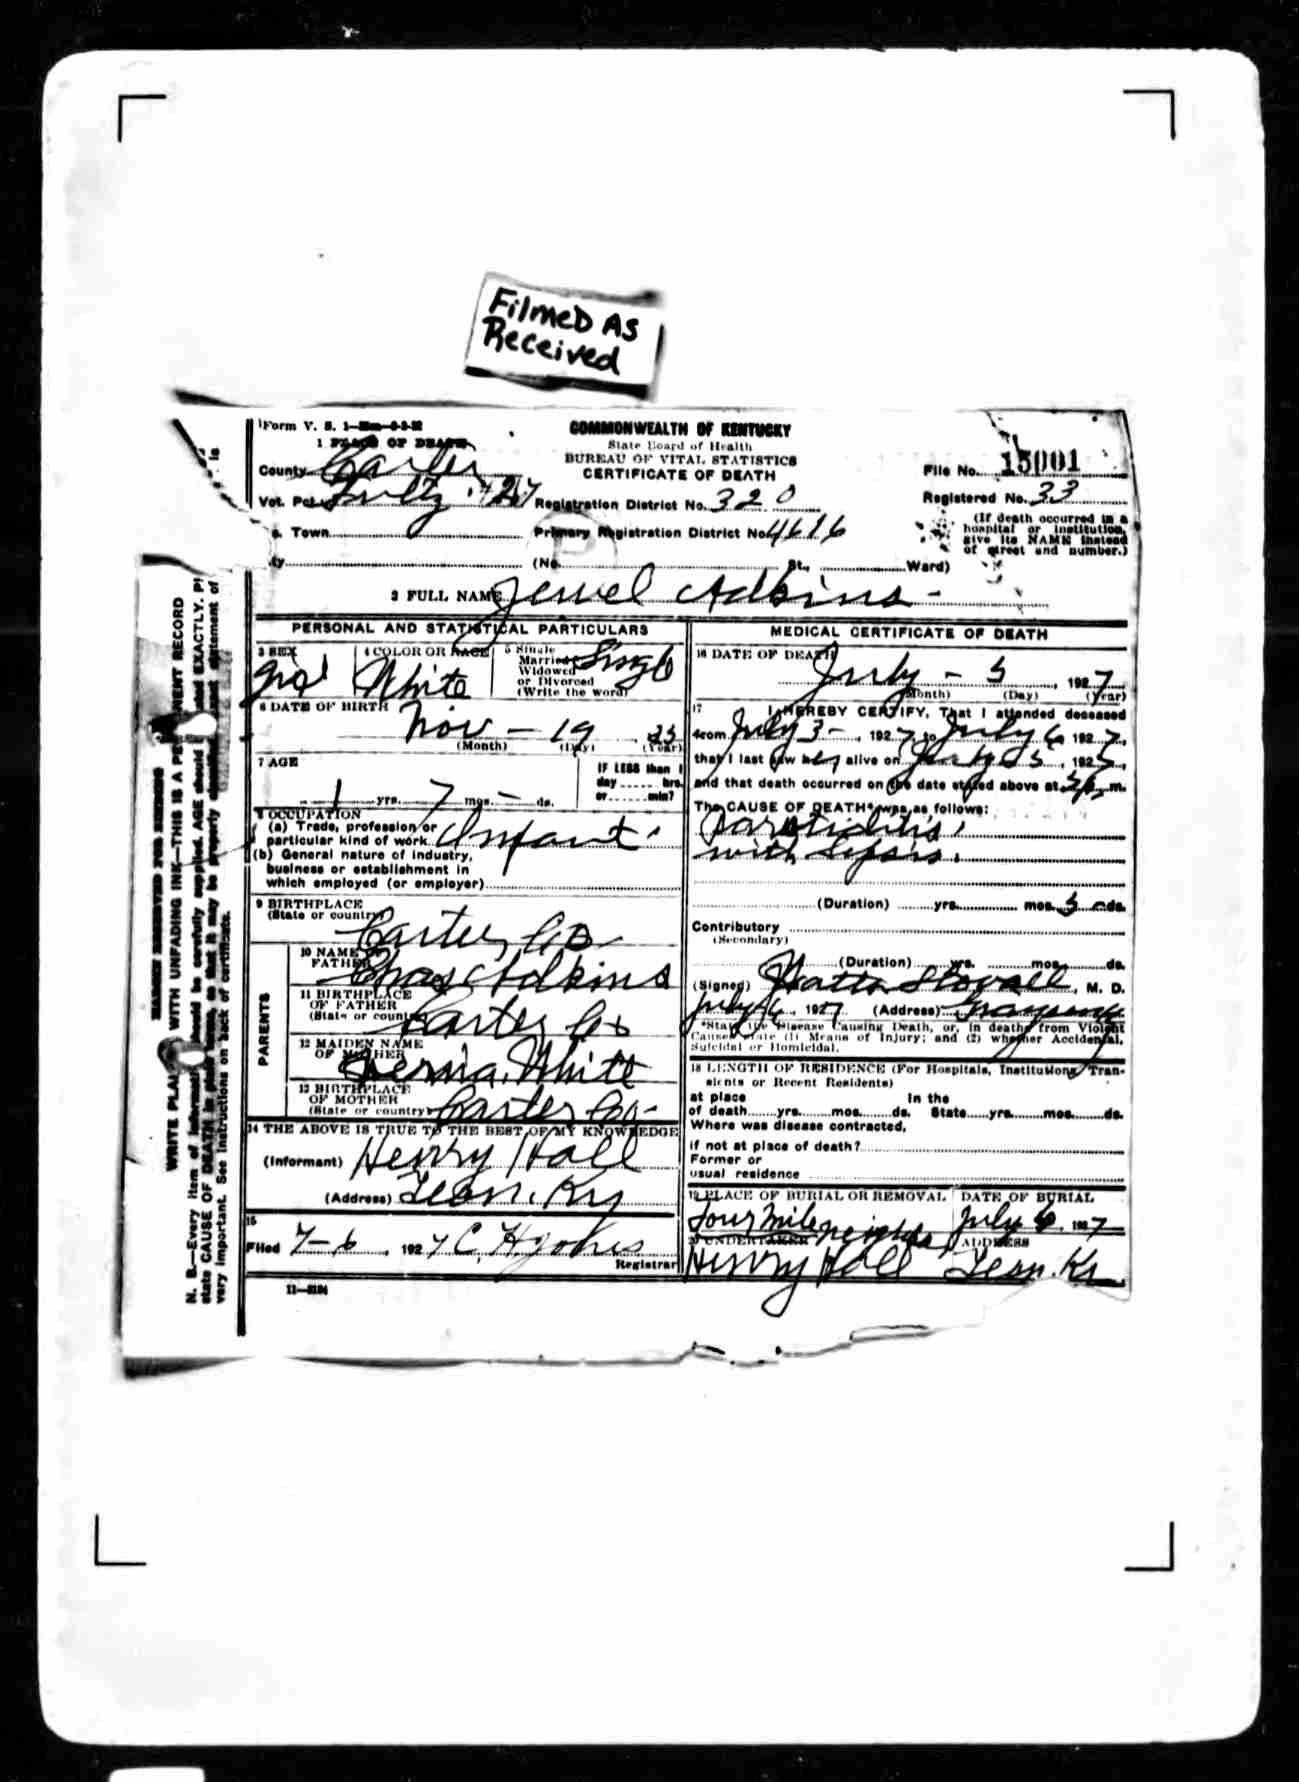 Filmed As
Received
Form V. S. 1
COMMONWEALTH OF KENTUCKY
State Board of Health
BUREAU OF VITAL STATISTICS
CERTIFICATE OF DEATH
1 PLACE OF DEATH
County Carter
File No. 15001
Vot. Pct
Registration District No. 320
Registered No. 33
Town
Primary Registration District No. 4616
(If death occurred in a hospital or institution, give its NAME instead of street and number.)
(No. St., Ward)
2 FULL NAME Jewel Adkins
PERSONAL AND STATISTICAL PARTICULARS
3 SEX
4 COLOR OR RACE White
5 Single
Married
Widowed
or Divorced
(Write the word) Single
6 DATE OF BIRTH Nov - 19
(Month) (Day) (Year)
7 AGE
1 yrs. 7 mos. - ds.
IF LESS than 1
day hrs.
or min?
8 OCCUPATION
(a) Trade, profession or
particular kind of work Infant
(b) General nature of industry,
business or establishment in
which employed (or employer)
9 BIRTHPLACE
(State or country) Carter Co
PARENTS
10 NAME OF
FATHER Chas Adkins
11 BIRTHPLACE
OF FATHER
(State or country) Carter Co
12 MAIDEN NAME
OF MOTHER White
13 BIRTHPLACE
OF MOTHER
(State or country) Carter Co-
14 THE ABOVE IS TRUE TO THE BEST OF MY KNOWLEDGE
(Informant) Henry Hall
(Address) Leon. Ky
15
Filed 7-6, 1927
Registrar
11-3184
MEDICAL CERTIFICATE OF DEATH
16 DATE OF DEATH
July - 5, 1927
(Month) (Day) (Year)
17 I HEREBY CERTIFY, That I attended deceased
from July 3-, 1927, to July 6, 1927,
that I last saw her alive on July 5, 192
and that death occurred on the date stated above at m.
The CAUSE OF DEATH* was as follows:
with Sepsis.
(Duration) yrs. mos. ds.
Contributory
(Secondary)
(Duration) yrs. mos. ds.
(Signed) Stovall, M. D.
July 6, 1927 (Address)
*State the Disease Causing Death, or, in death from Violent
Causes state (1) Means of Injury; and (2) whether Accidental,
Suicidal or Homicidal.
18 LENGTH OF RESIDENCE (For Hospitals, Institutions, Tran-
sients or Recent Residents)
at place In the
of death yrs. mos. ds. State yrs. mos. ds.
Where was disease contracted,
if not at place of death?
Former or
usual residence
19 PLACE OF BURIAL OR REMOVAL DATE OF BURIAL
Four Mile July 6, 1927
20 UNDERTAKER ADDRESS
Henry Hall Leon. Ky